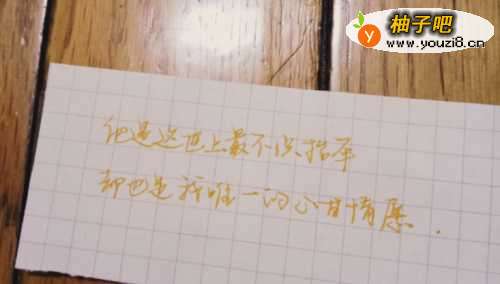 柚子吧
www.youzi8.cn
他是这世上最不识抬举
却也是我唯一的心甘情愿.